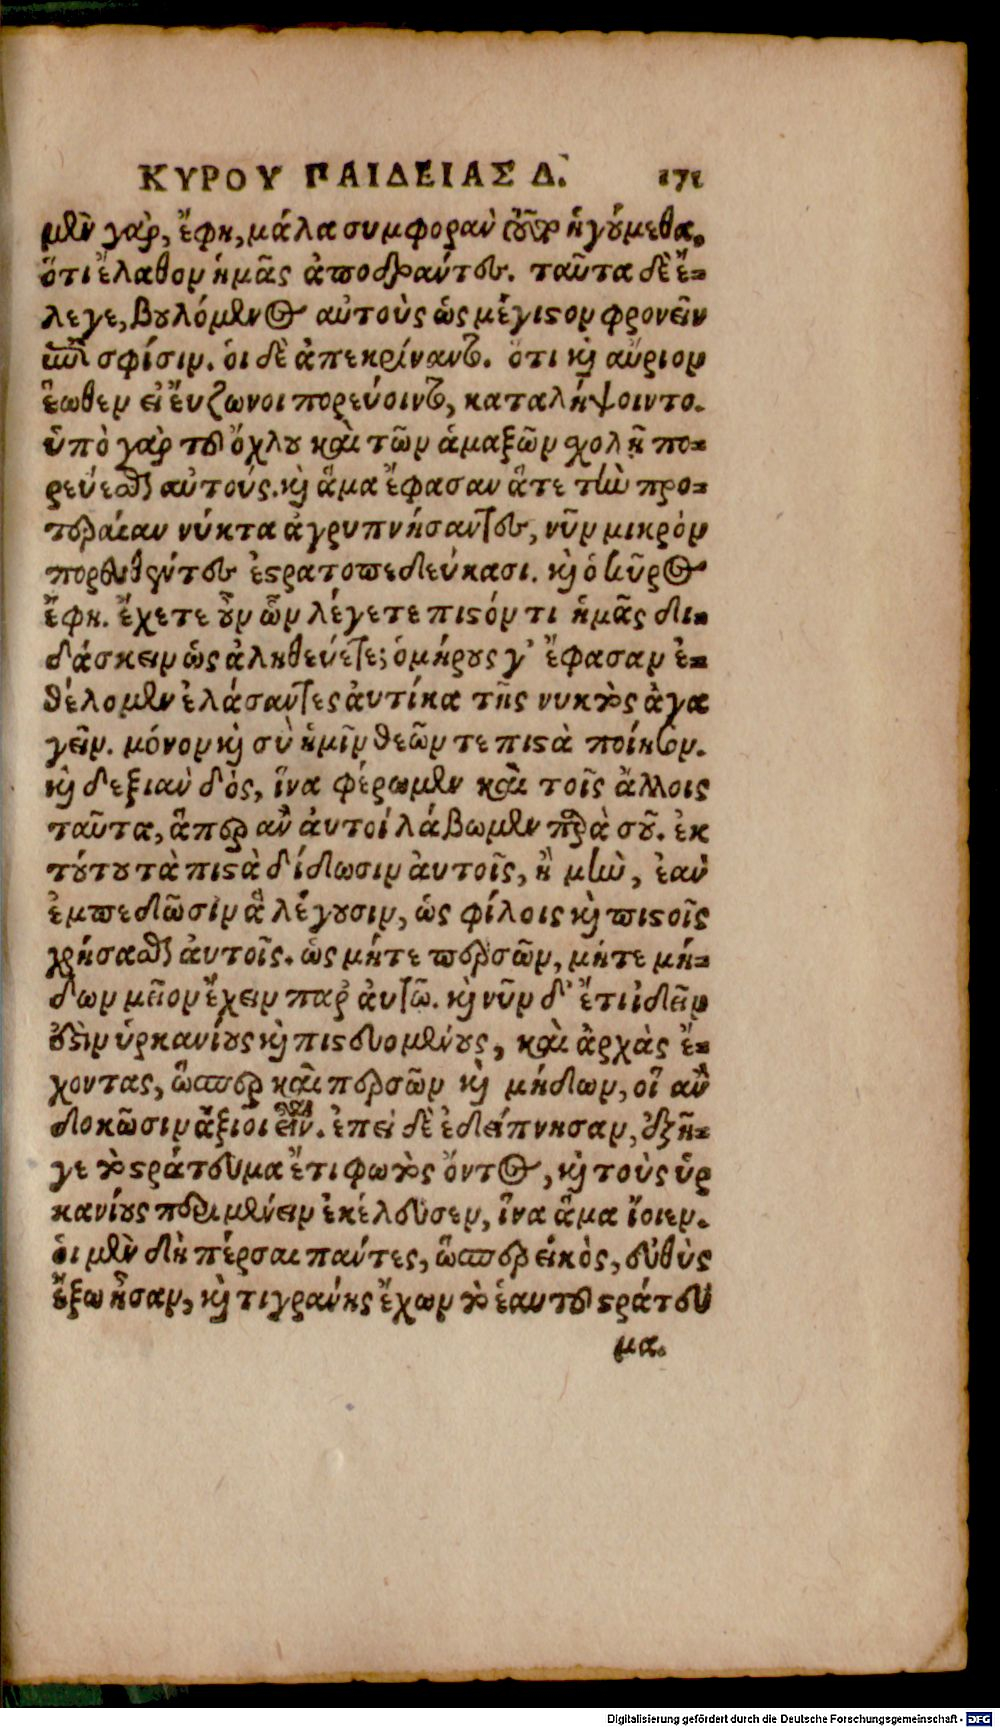 ΚΥΡΟΥ ΠΑΙΔΕΙΑΣ Δ. 171
μὲν γὰρ, ἔφη, μάλα συμφορὰν τοῦτο ἡγούμεθα.
ὅτι ἔλαθον ἡμᾶς ἀποδράντες. ταῦτα δὲ ἔ-
λεγε, βουλόμενος αὐτοὺς ὡς μέγιστον φρονεῖν
ἐπὶ σφίσιν. οἱ δὲ ἀπεκρίναντο. ὅτι καὶ αὔριον
ἕωθεν εἰ ἔυζωνοι πορεύοιντο, καταλήψοιντο.
ὑπὸ γὰρ τοῦ ὄχλου καὶ τῶν ἁμαξῶν σχολῇ πο-
ρεύεσθαι αὐτούς. καὶ ἅμα ἔφασαν ἅτε τὴν προ-
τεραίαν νύκτα ἀγρυπνήσαντες, νῦν μικρὸν
πορευθέντες ἐστρατοπεδεύκασι. καὶ ὁ κῦρος
ἔφη. ἔχετε οὖν ὧν λέγετε πιστόν τι ἡμᾶς δι-
δάσκειν ὡς ἀληθεύετε; ὁμήρους γ' ἔφασαν ἐ-
θέλομεν ἐλάσαντες ἀυτίκα τῆς νυκτὸς ἀγα
γεῖν. μόνον καὶ σὺ ἡμῖν θεῶν τε πιστὰ ποίησον.
καὶ δεξιὰν δὸς, ἵνα φέρωμεν καὶ τοῖς ἄλλοις
ταῦτα, ἅπερ ἂν ἀυτοὶ λάβωμεν παρὰ σοῦ. ἐκ
τούτου τὰ πιστὰ δίδωσιν ἀυτοῖς, ἦ μὴν, ἐὰν
ἐμπεδῶσιν ἃ λέγουσιν, ὡς φίλοις καὶ πιστοῖς
χρήσασθαι ἀυτοῖς. ὡς μήτε περσῶν, μήτε μή-
δων μεῖον ἔχειν παρ' ἀυτῷ. καὶ νῦν δ' ἔτι ἰδεῖν
ἐστὶν ὑρκανίους καὶ πιστευομένους, καὶ ἀρχὰς ἔ-
χοντας, ὥσπερ καὶ περσῶν καὶ μήδων, οἳ ἂν
δοκῶσιν ἄξιοι εἶναι. ἐπεὶ δὲ ἐδείπνησαν, ἐξῆ-
γε τὸ στράτευμα ἔτι φωτὸς ὄντος, καὶ τοὺς ὑρ
κανίους περιμένειν ἐκέλευσεν, ἵνα ἅμα ἴοιεν.
οἱ μὲν δὴ πέρσαι πάντες, ὥσπερ εἰκὸς, εὐθὺς
ἔξω ἦσαν, καὶ τιγράνης ἔχων τὸ ἑαυτοῦ στράτευ
μα.
Digitalisierung gefördert durch die Deutsche Forschungsgemeinschaft - DFG